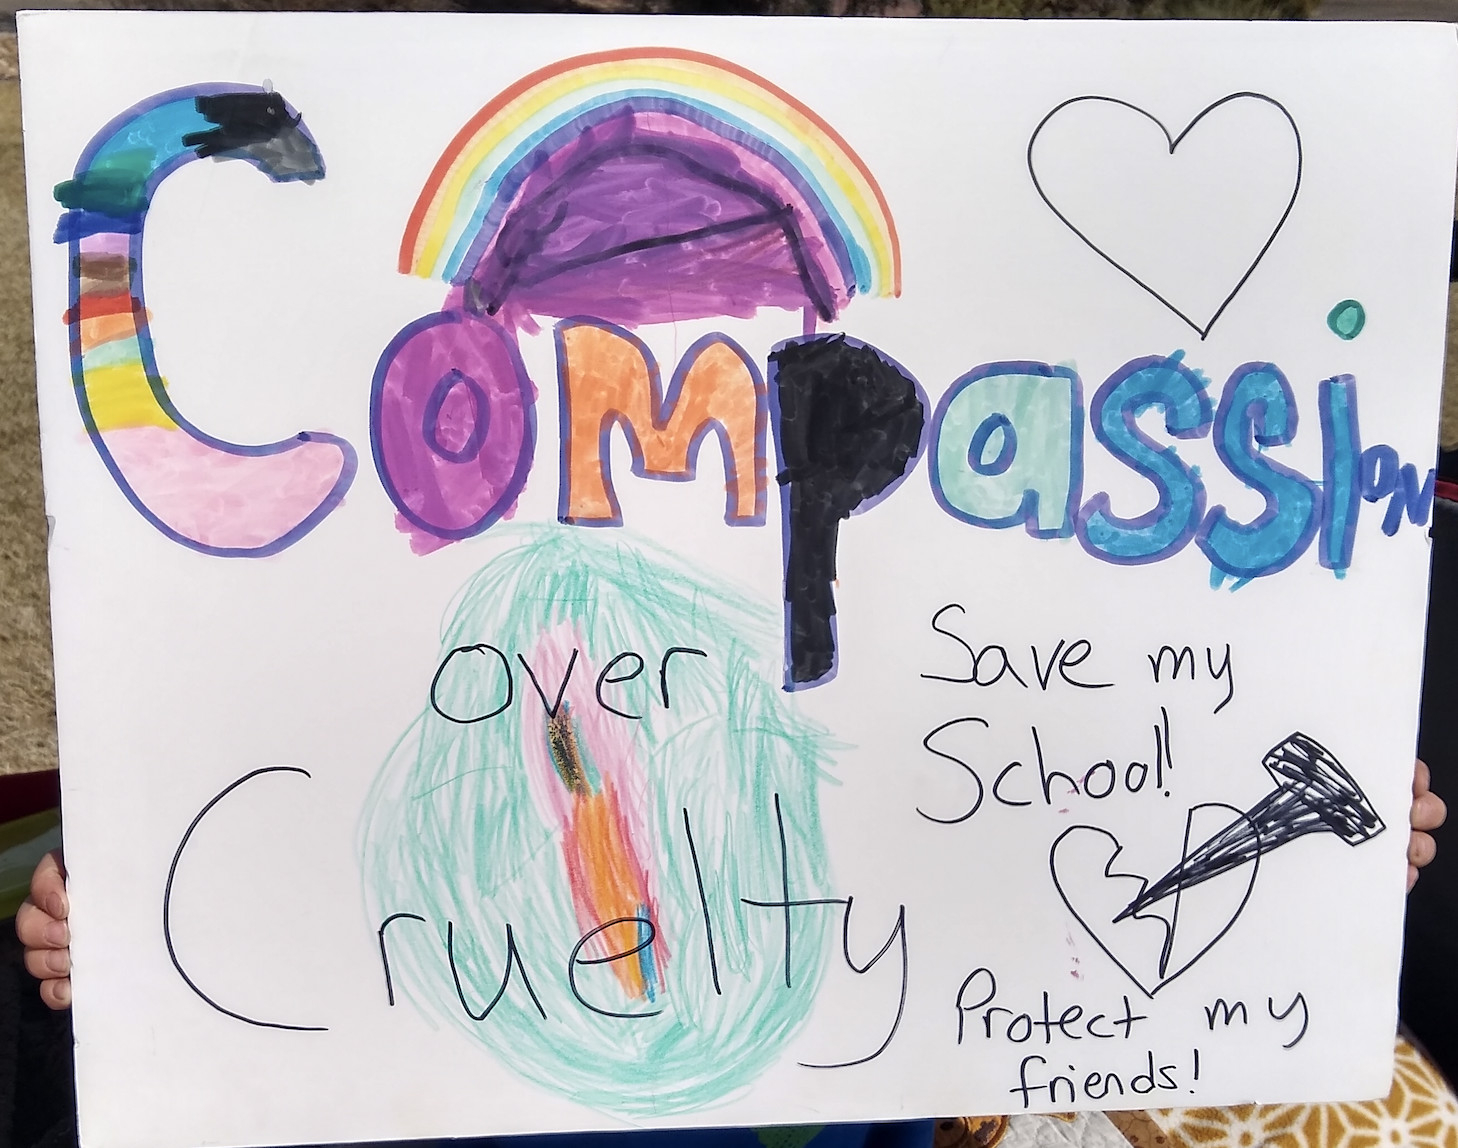 Compassion
over
Cruelty
Save my
School!
Protect my
friends!